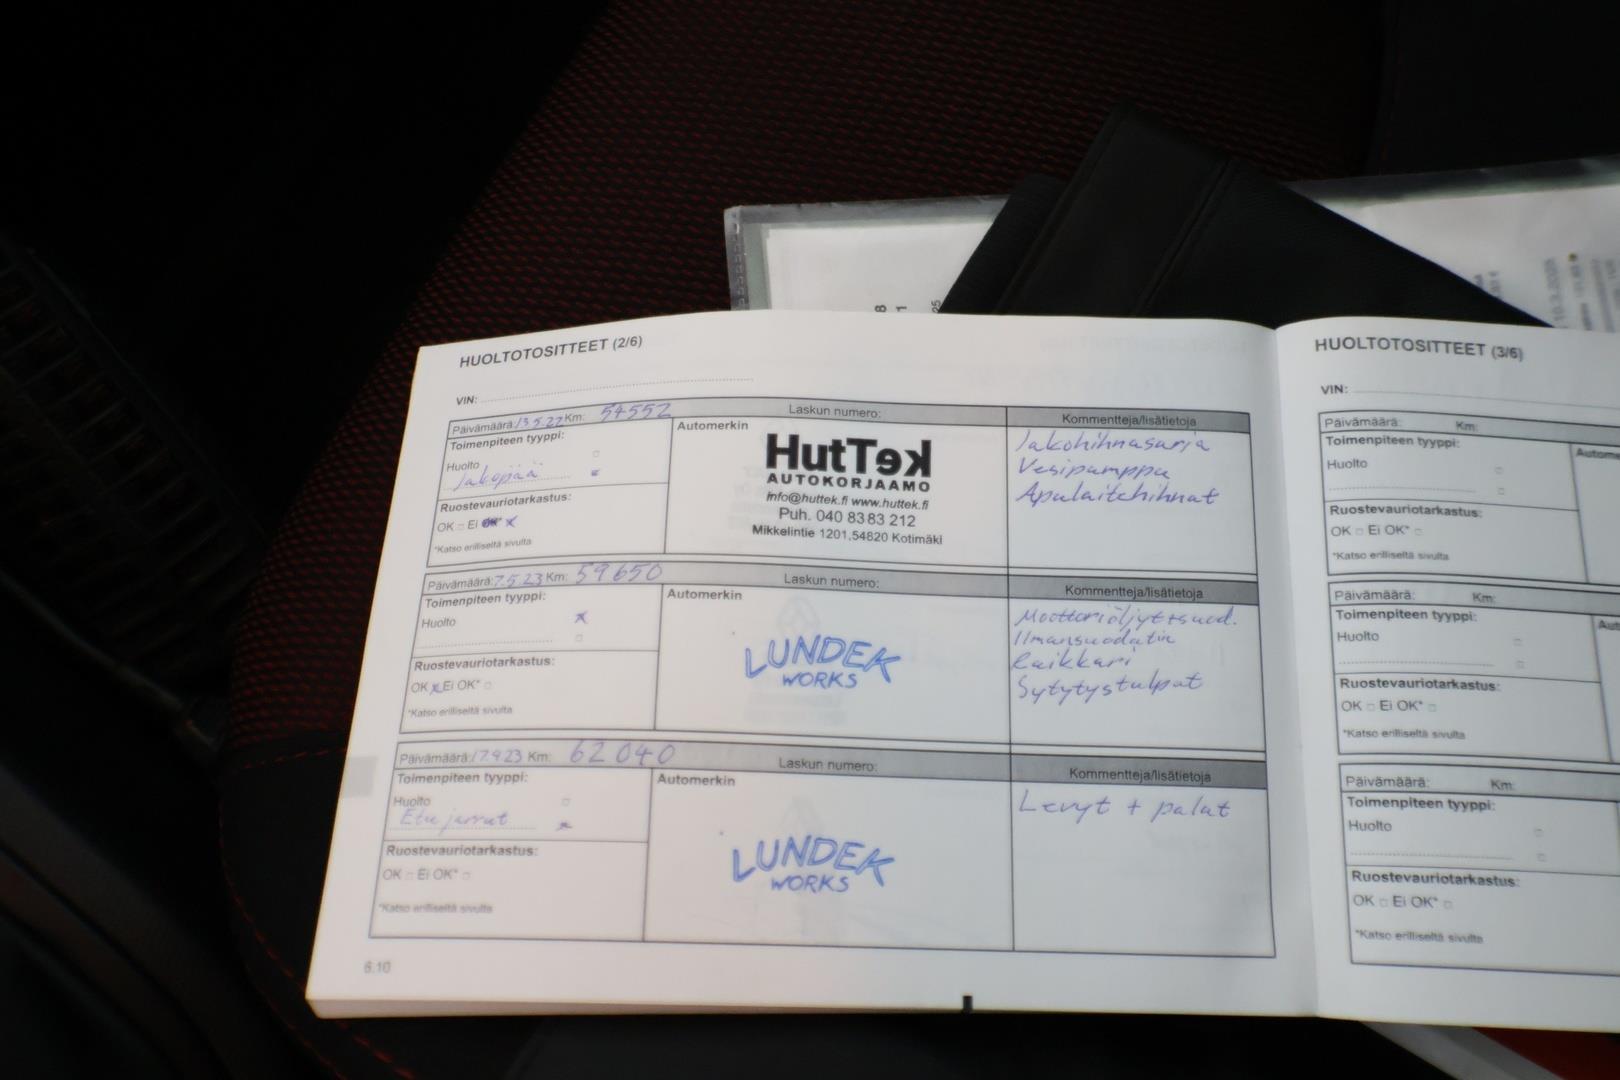 HUOLTOTOSITTEET (2/6)
VIN:
Päivämäärä: 13.5.22 Km: 54552 Laskun numero:
Toimenpiteen tyyppi:
Huolto
Jakopää
Ruostevauriotarkastus:
OK Ei OK* x
*Katso erilliseltä sivulta
Automerkin
HutTek
AUTOKORJAAMO
info@huttek.fi www.huttek.fi
Puh. 040 8383 212
Mikkelintie 1201,54820 Kotimäki
Kommentteja/lisätietoja
Jakohihnasarja
Vesipumppu
Apulaitehihnat
Päivämäärä: 7.5.23 Km: 59650 Laskun numero:
Toimenpiteen tyyppi:
Huolto x
Ruostevauriotarkastus:
OK x Ei OK*
*Katso erilliseltä sivulta
Automerkin
LUNDEK
WORKS
Kommentteja/lisätietoja
Moottoriöljyt+suod.
Ilmansuodatin
Raikkari
Sytytystulpat
Päivämäärä: 17.9.23 Km: 62040 Laskun numero:
Toimenpiteen tyyppi:
Huolto
Etujarrut x
Ruostevauriotarkastus:
OK Ei OK*
*Katso erilliseltä sivulta
Automerkin
LUNDEK
WORKS
Kommentteja/lisätietoja
Levyt + palat
6.10
HUOLTOTOSITTEET (3/6)
VIN:
Päivämäärä: Km:
Toimenpiteen tyyppi:
Huolto
Ruostevauriotarkastus:
OK Ei OK*
*Katso erilliseltä sivulta
Päivämäärä: Km:
Toimenpiteen tyyppi:
Huolto
Ruostevauriotarkastus:
OK Ei OK*
*Katso erilliseltä sivulta
Päivämäärä: Km:
Toimenpiteen tyyppi:
Huolto
Ruostevauriotarkastus:
OK Ei OK*
*Katso erilliseltä sivulta